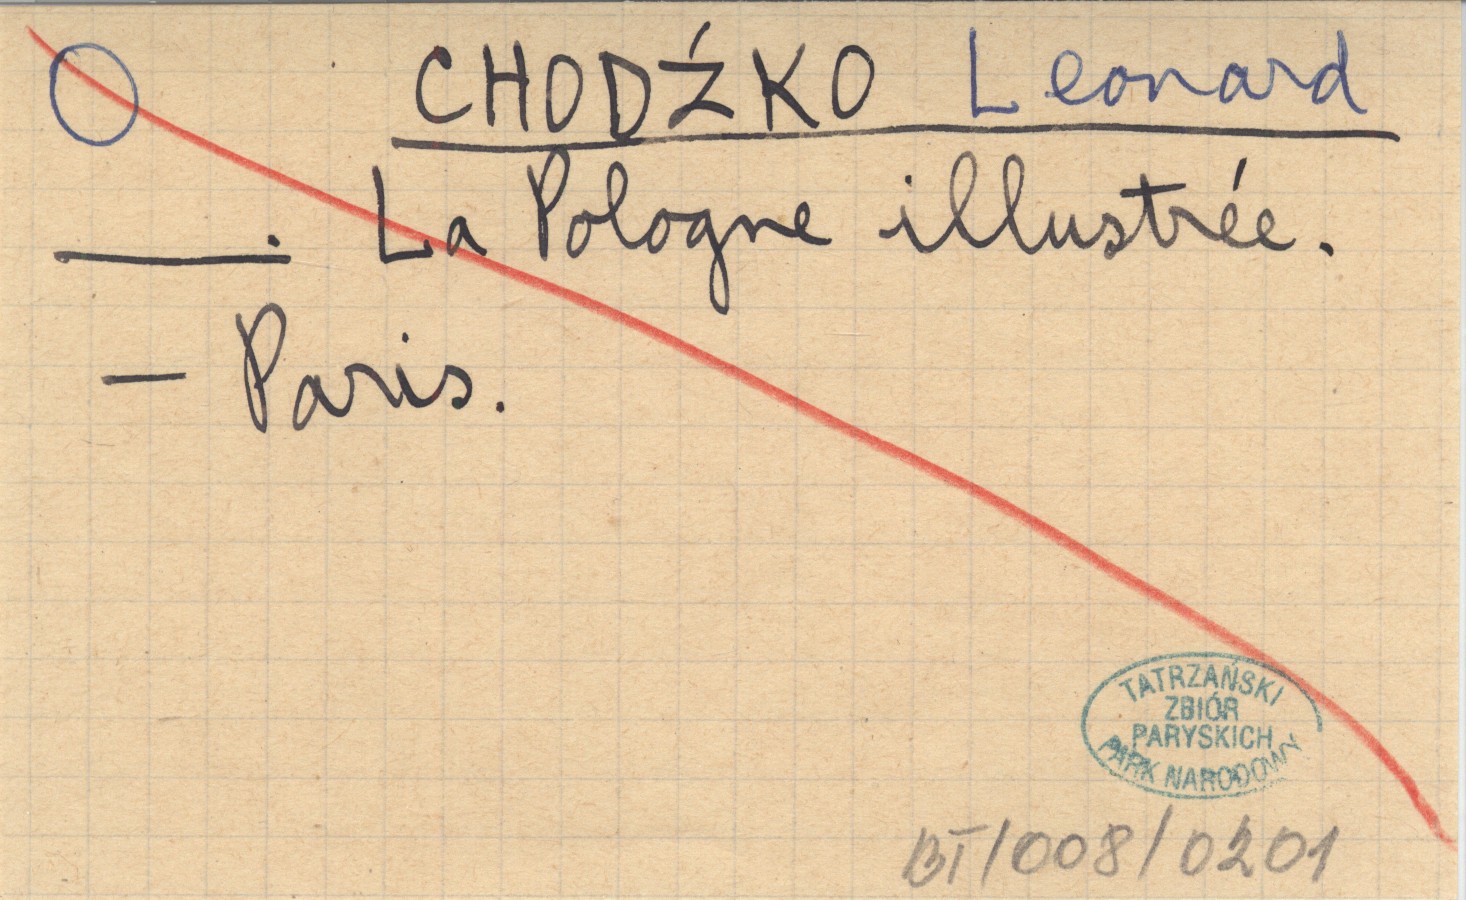 CHODŹKO Leonard
———. La Pologne illustrée.
— Paris.
TATRZAŃSKI
ZBIÓR
PARYSKICH
PARK NARODOWY
BT/008/0201